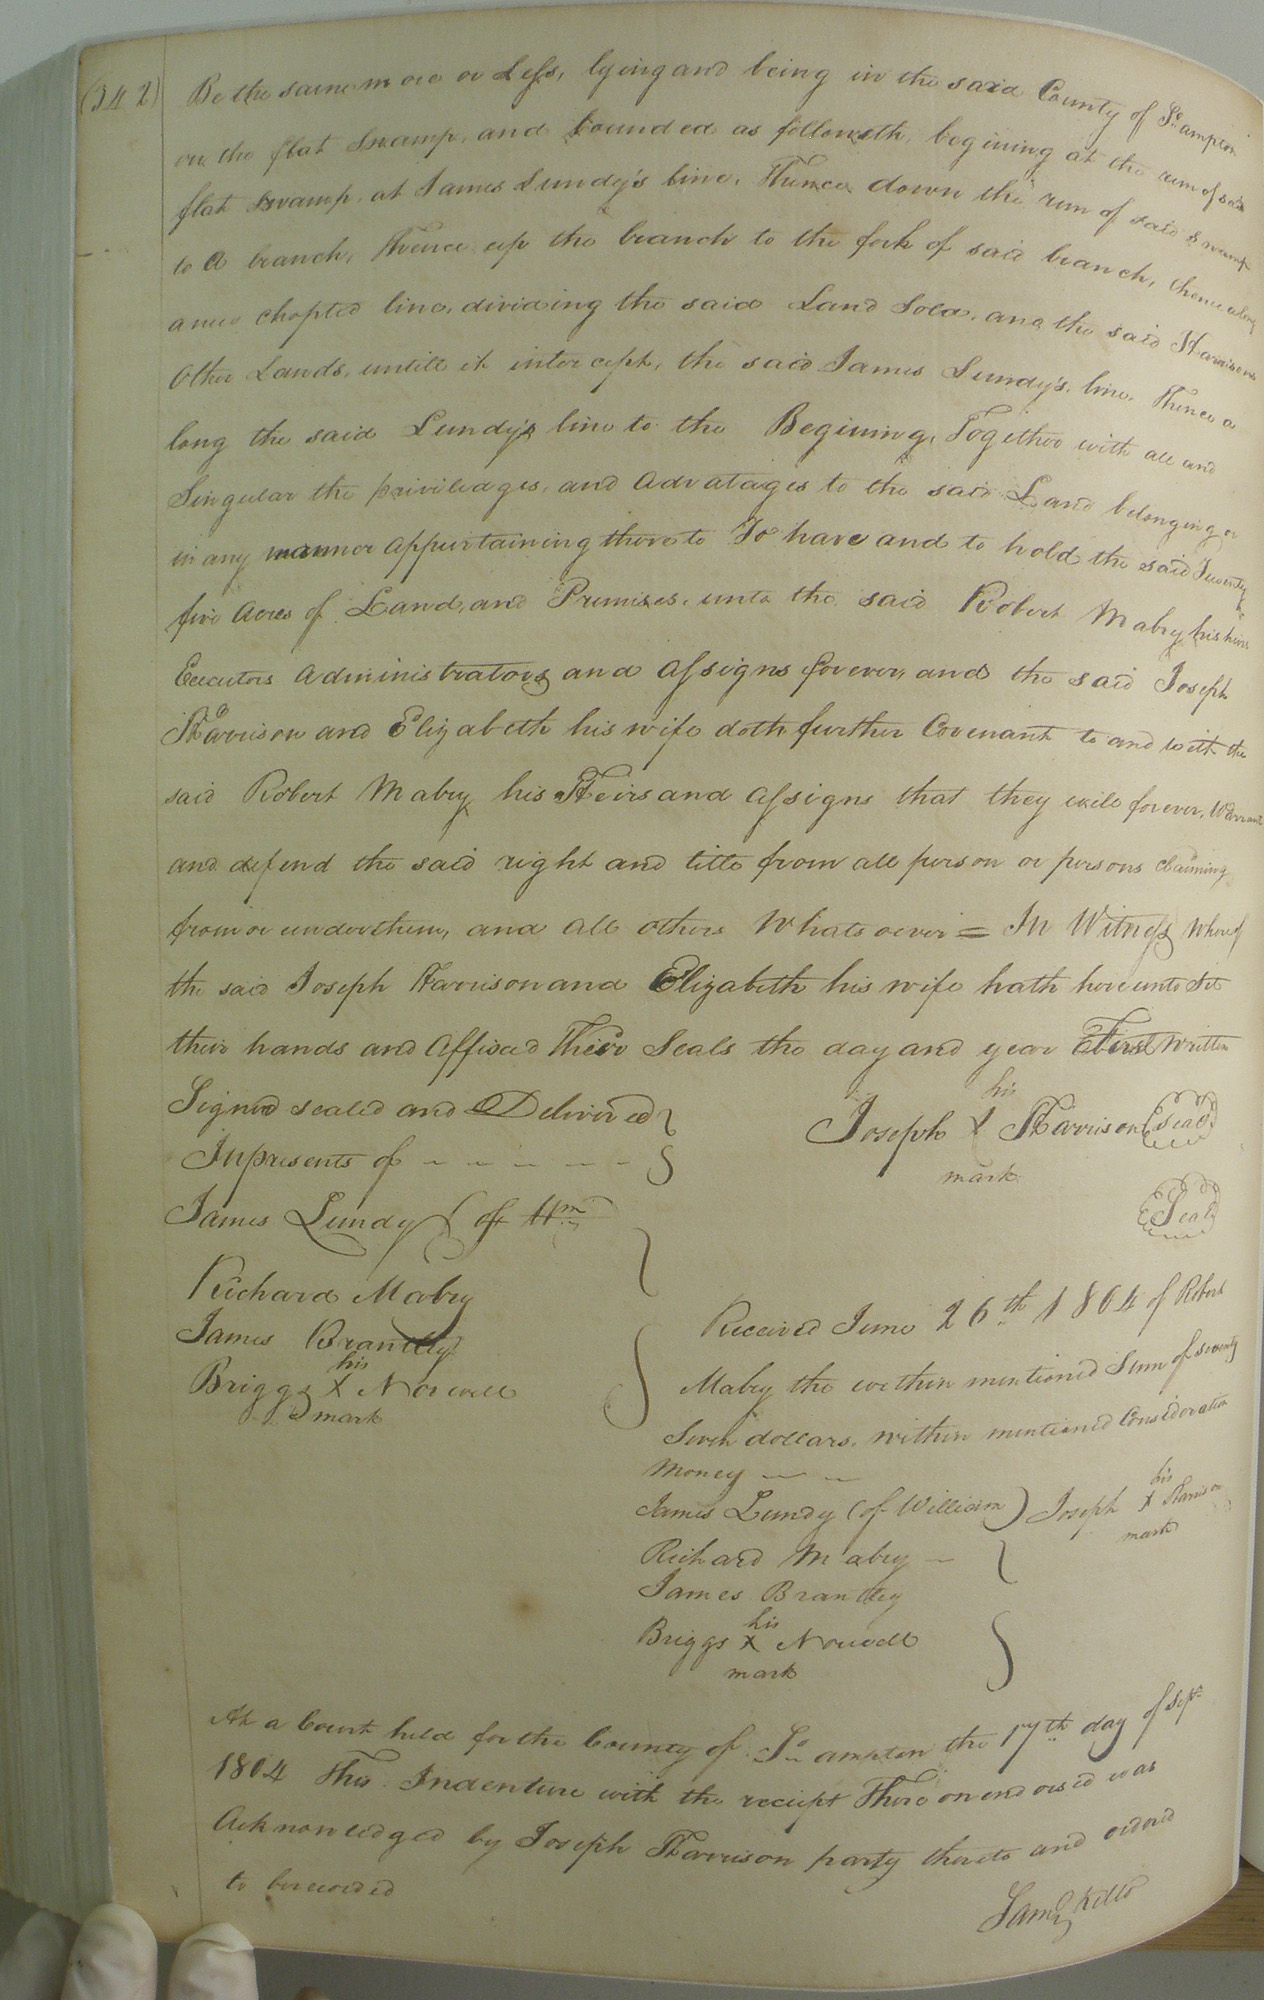 (342)
Be the same more or Less, lying and being in the said County of So.ampton
on the flat Swamp, and bounded as followeth, begining at the run of said
flat swamp at James Lundy's line, Thence down the run of said swamp
to a branch, Thence up the branch to the fork of said branch, thence along
a new chopted line, dividing the said Land Sold, and the said Harrisons
Other Lands, untill it intercept, the said James Lundy's line, Thence a
long the said Lundy's line to the Begining, Together with all and
Singular the priviledges, and advatages to the said Land belonging or
in any manner appurtaining thereto To have and to hold the said Twenty
five Acres of Land, and Premises, unto the said Robert Mabry his heirs
Executors Administrators and assigns forever, and the said Joseph
Harrison and Elizabeth his wife doth further Covenant to and with the
said Robert Mabry his Heirs and assigns that they will forever, Warrant
and defend the said right and title from all person or persons claiming
from or under them, and all others Whatsoever = In Witness Whereof
the said Joseph Harrison and Elizabeth his wife hath hereunto Set
their hands and affixed Their Seals the day and year First written
Signed sealed and Delivered
Inpresents of
his
Joseph X Harrison (Seal)
mark
James Lundy (of Wm
(Seal)
Richard Mabry
James Brantley
his
Briggs X Norvell
mark
Received June 26th 1804 of Robert
Mabry the within mentioned Sum of seventy
Seven dollars, within mentioned Consideration
Money
James Lundy (of William)
his
Joseph X Harrison
mark
Richard Mabry
James Brantley
his
Briggs X Norvell
mark
At a Court held for the County of So.ampton the 17th day of Sept.
1804 This Indenture with the reciept Thereon endorsed was
Acknowledged by Joseph Harrison party thereto and ordered
to be recorded
Saml Kello